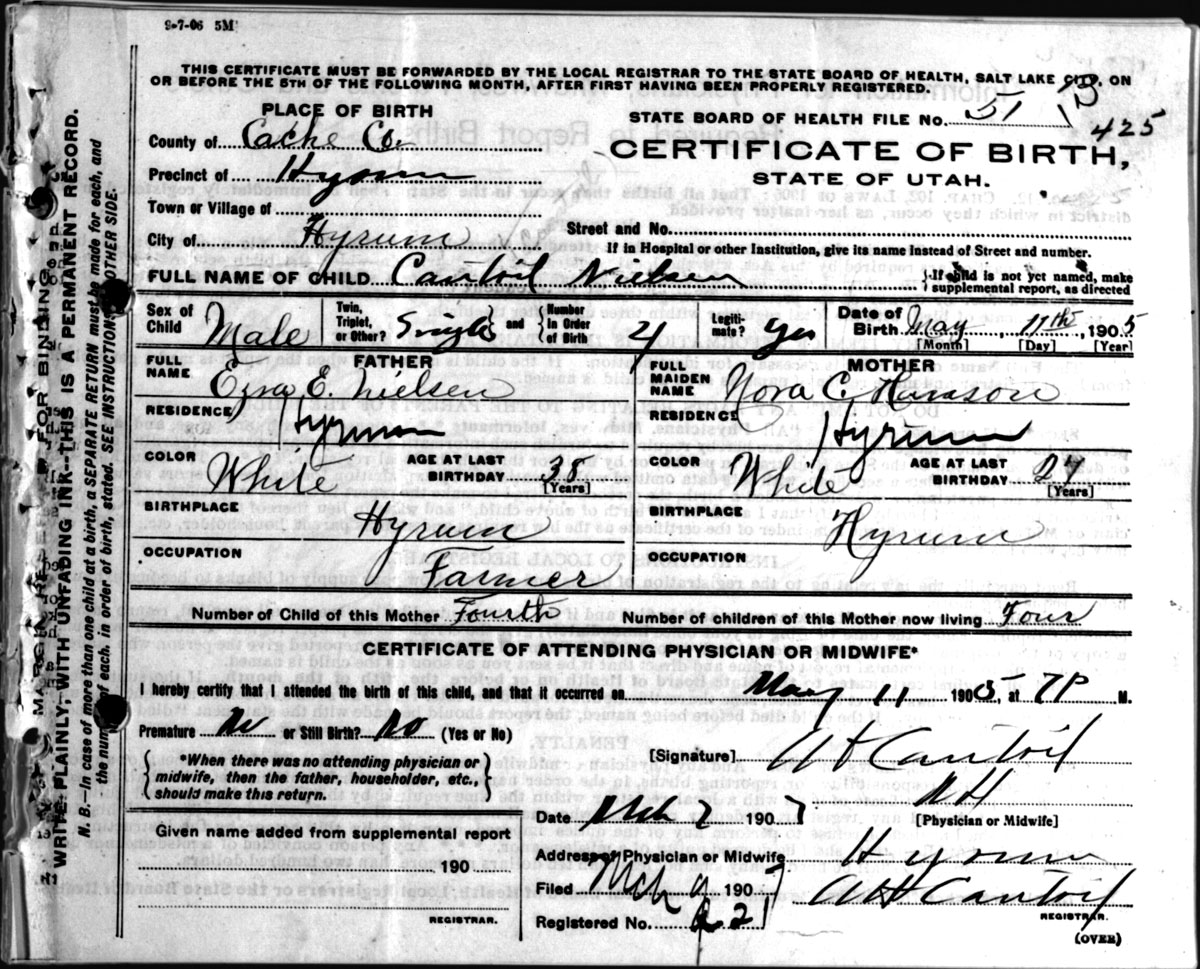 9-7-06 5M
THIS CERTIFICATE MUST BE FORWARDED BY THE LOCAL REGISTRAR TO THE STATE BOARD OF HEALTH, SALT LAKE CITY, ON
OR BEFORE THE 5TH OF THE FOLLOWING MONTH, AFTER FIRST HAVING BEEN PROPERLY REGISTERED.
PLACE OF BIRTH
STATE BOARD OF HEALTH FILE No. 51 13
425
County of Cache Co.
CERTIFICATE OF BIRTH,
STATE OF UTAH.
Precinct of Hyrum
Town or Village of
Street and No.
City of Hyrum
If in Hospital or other Institution, give its name instead of Street and number.
FULL NAME OF CHILD Cantril Nielsen
{If child is not yet named, make
supplemental report, as directed
Sex of Child Male Twin, Triplet, or Other? Single and {Number in Order of Birth 4 Legiti-mate? yes Date of Birth May 11th 1905
[Month] [Day] [Year]
FATHER
MOTHER
FULL NAME Ezra E. Nielsen
FULL MAIDEN NAME Nora C.
RESIDENCE Hyrum
RESIDENCE Hyrum
COLOR White AGE AT LAST BIRTHDAY 38 [Years]
COLOR White AGE AT LAST BIRTHDAY 27 [Years]
BIRTHPLACE Hyrum
BIRTHPLACE Hyrum
OCCUPATION Farmer
OCCUPATION
Number of Child of this Mother Fourth Number of children of this Mother now living Four
CERTIFICATE OF ATTENDING PHYSICIAN OR MIDWIFE*
I hereby certify that I attended the birth of this child, and that it occurred on May 11 1905, at 7P M.
Premature No or Still Birth? No (Yes or No)
{*When there was no attending physician or
midwife, then the father, householder, etc.,
should make this return.}
[Signature] Cantril
[Physician or Midwife]
Date Mch 7 1907
Given name added from supplemental report
190
REGISTRAR.
Address of Physician or Midwife Hyrum
Filed Mch 9 1907 Cantril
REGISTRAR.
Registered No. 22
(OVER)
MARGIN RESERVED FOR BINDING
WRITE PLAINLY, WITH UNFADING INK--THIS IS A PERMANENT RECORD.
N. B.--In case of more than one child at a birth, a SEPARATE RETURN must be made for each, and
the number of each, in order of birth, stated. SEE INSTRUCTIONS OTHER SIDE.